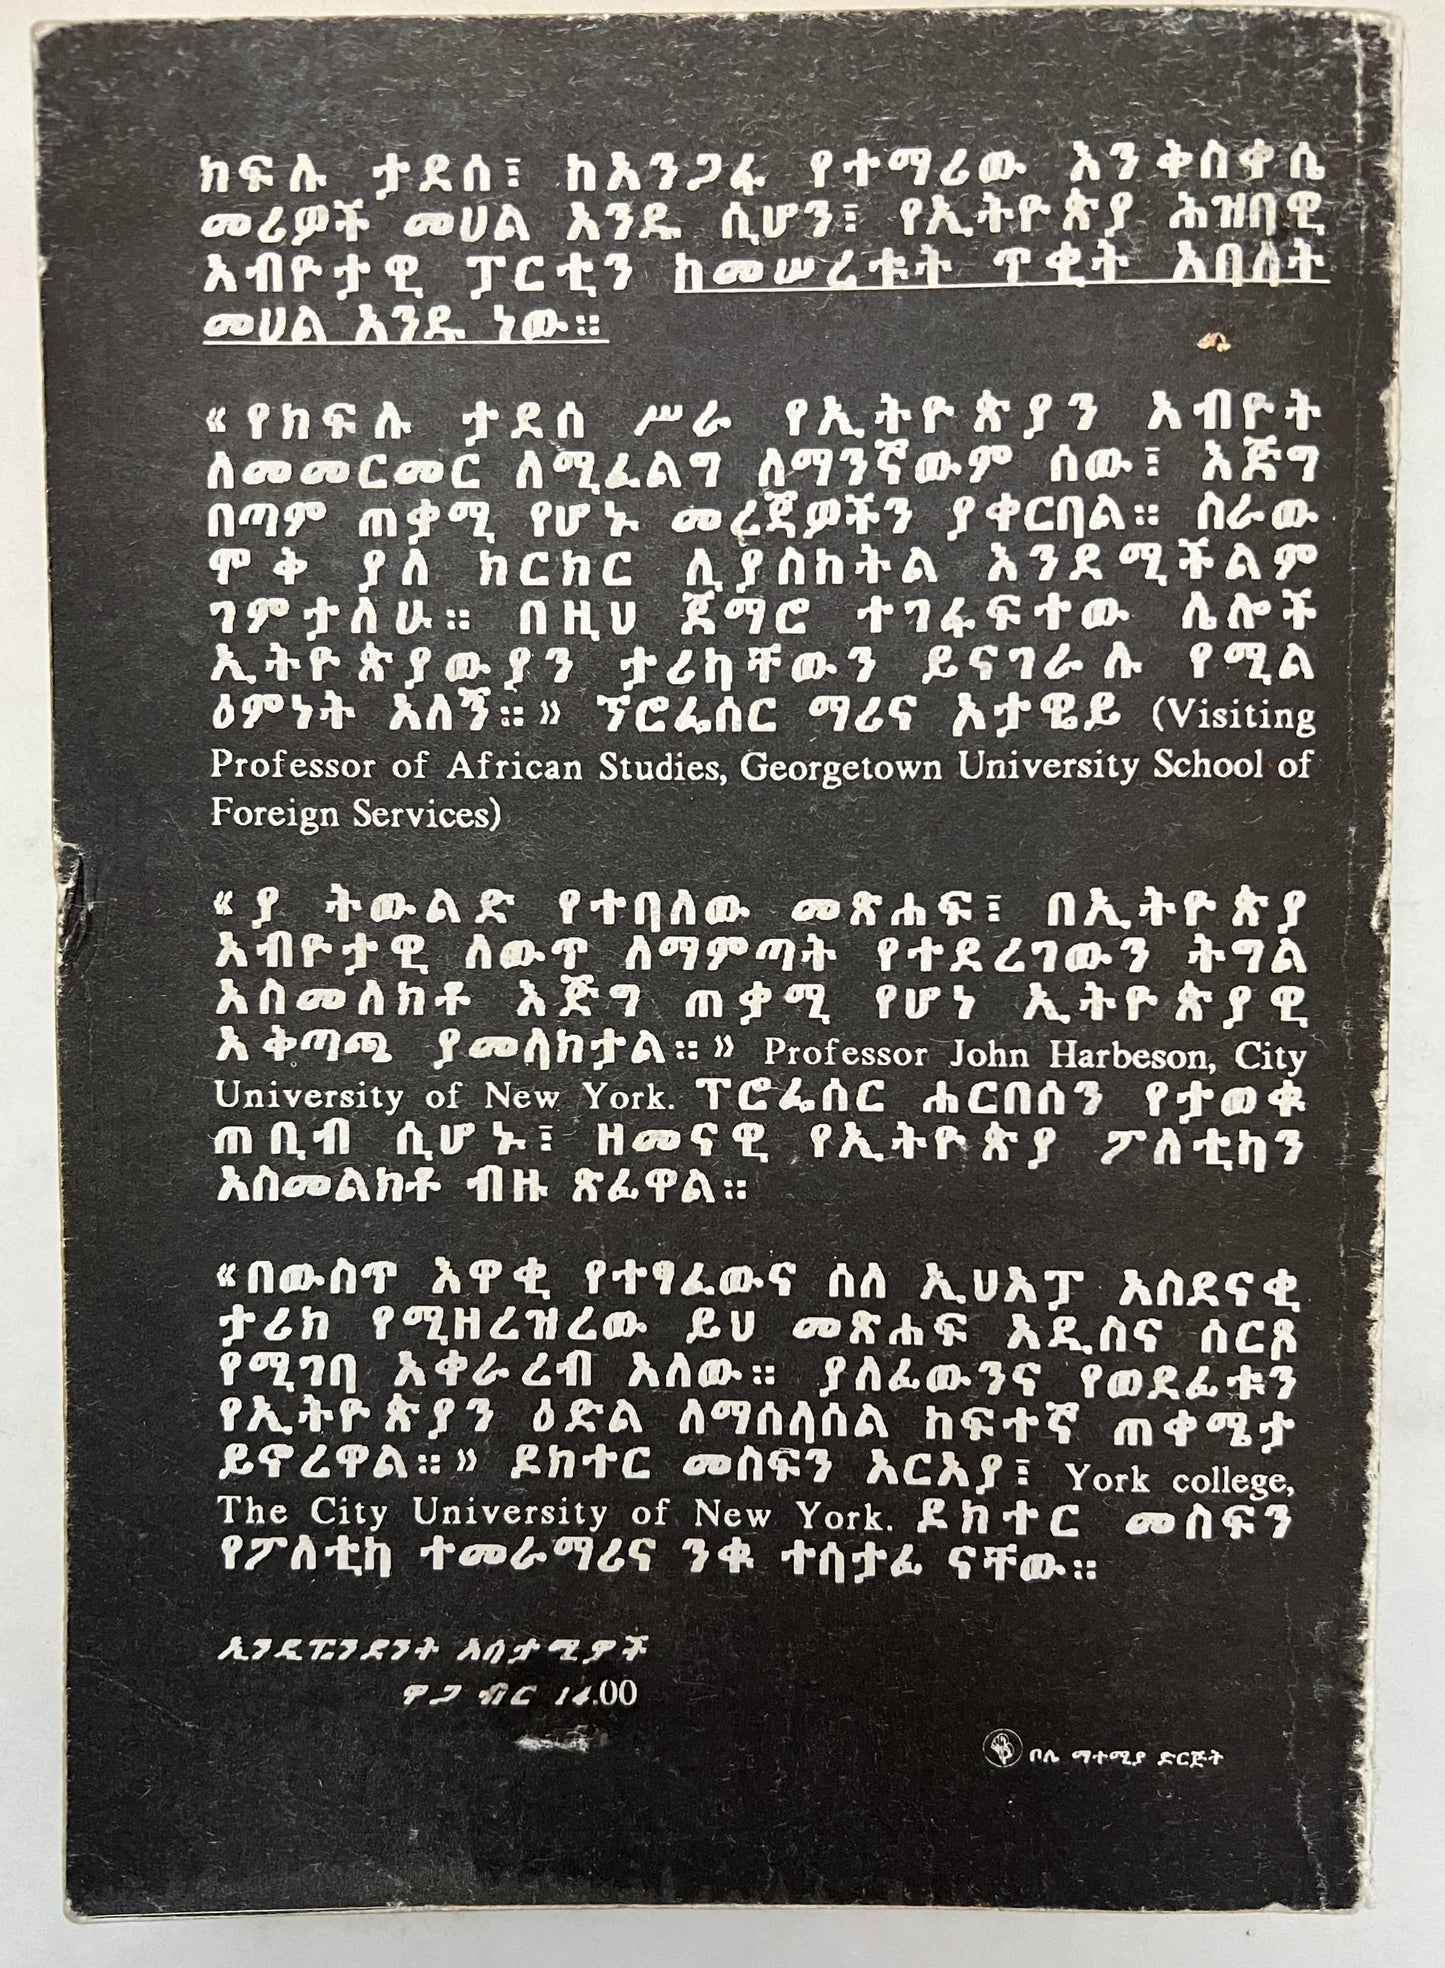 ክፍሉ ታደሰ፣ ከአንጋፋ የተማሪው እንቅስቃሴ
መሪዎች መሀል አንዱ ሲሆን፣ የኢትዮጵያ ሕዝባዊ
አብዮታዊ ፓርቲን ከመሠረቱት ጥቂት አበለት
መሀል አንዱ ነው።
«የክፍሉ ታደሰ ሥራ የኢትዮጵያን አብዮት
ለመመርመር ለሚፈልግ ለማንኛውም ሰው፣ እጅግ
በጣም ጠቃሚ የሆኑ መረጃዎችን ያቀርባል። ስራው
ሞቅ ያለ ክርክር ሊያስከትል እንደሚችልም
ገምታለሁ። በዚህ ጀማሮ ተገፋፍተው ሌሎች
ኢትዮጵያውያን ታሪካቸውን ይናገራሉ የሚል
ዕምነት አለኝ።» ፕሮፌሰር ማሪና ኦታዌይ (Visiting
Professor of African Studies, Georgetown University School of
Foreign Services)
«ያ ትውልድ የተባለው መጽሐፍ፣ በኢትዮጵያ
አብዮታዊ ለውጥ ለማምጣት የተደረገውን ትግል
አስመለክቶ እጅግ ጠቃሚ የሆነ ኢትዮጵያዊ
አቅጣጫ ያመላከታል።» Professor John Harbeson, City
University of New York. ፕሮፌሰር ሐርበሰን የታወቁ
ጠቢብ ሲሆኑ፣ ዘመናዊ የኢትዮጵያ ፖለቲካን
አስመልክቶ ብዙ ጽፈዋል።
«በውስጥ እዋቂ የተፃፈውና ሰለ ኢህአፓ አስደናቂ
ታሪክ የሚዘረዝረው ይህ መጽሐፍ አዲስና ሰርጾ
የሚገባ አቀራረብ አለው። ያለፈውንና የወደፊቱን
የኢትዮጵያን ዕድል ለማሰላሰል ከፍተኛ ጠቀሜታ
ይኖረዋል።» ዶክተር መስፍን አርአያ፣ York college,
The City University of New York. ዶክተር መስፍን
የፖለቲካ ተመራማሪና ንቁ ተሳታፊ ናቸው።
ኢንዲፔንደንት አሳታሚዎች
ዋጋ ብር 14.00
ቦሌ ማተሚያ ድርጅት